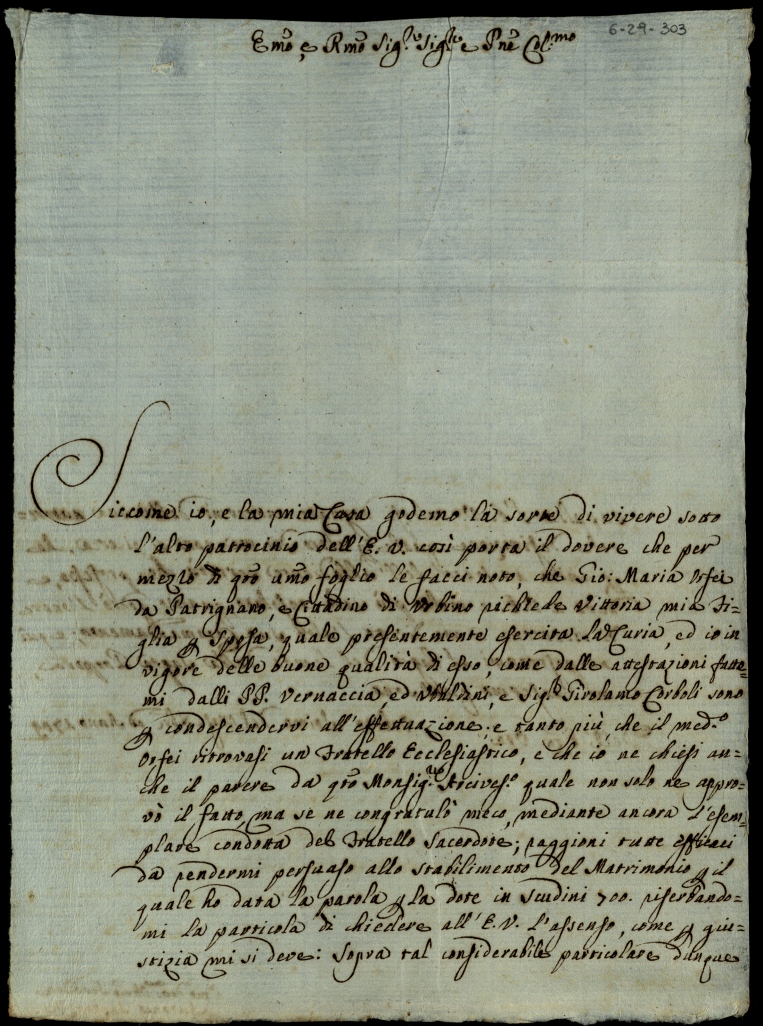 6-29-303
Emo e Rmo Sig.e Sig.e e Pne Col.mo
Siccome io, e la mia Casa godemo la sorte di vivere sotto
l'alto patrocinio dell'E. V. così porta il dovere che per
mezzo di qto umo foglio le facci noto, che Gio: Maria Orfei
da Patrignano, e Cittadino di Urbino richiede Vittoria mia Fi=
glia p Sposa, quale presentemente esercita la Curia, ed io in
vigore delle buone qualità di esso, come dalle attestazioni fatte=
mi dalli PP. Vernaccia, ed Ubaldini, e Sig.e Girolamo Corboli sono
p condescendervi all'effettuazione, e tanto più, che il med.o
Orfei ritrovasi un Fratello Ecclesiastico, e che io ne chiesi an=
che il parere da qto Monsig.re Arcives.o quale non solo ne appro=
vò il fatto, ma se ne congratulò meco, mediante ancora l'esem=
plare condotta del Fratello Sacerdote; raggioni tutte efficaci
da rendermi persuaso allo stabilimento del Matrimonio, p il
quale ho data la parola p la dote in Scudini 700. riserbando=
mi la particola di chiedere all'E. V. l'assenso, come p giu=
stizia mi si deve: Sopra tal considerabile particolare dunque